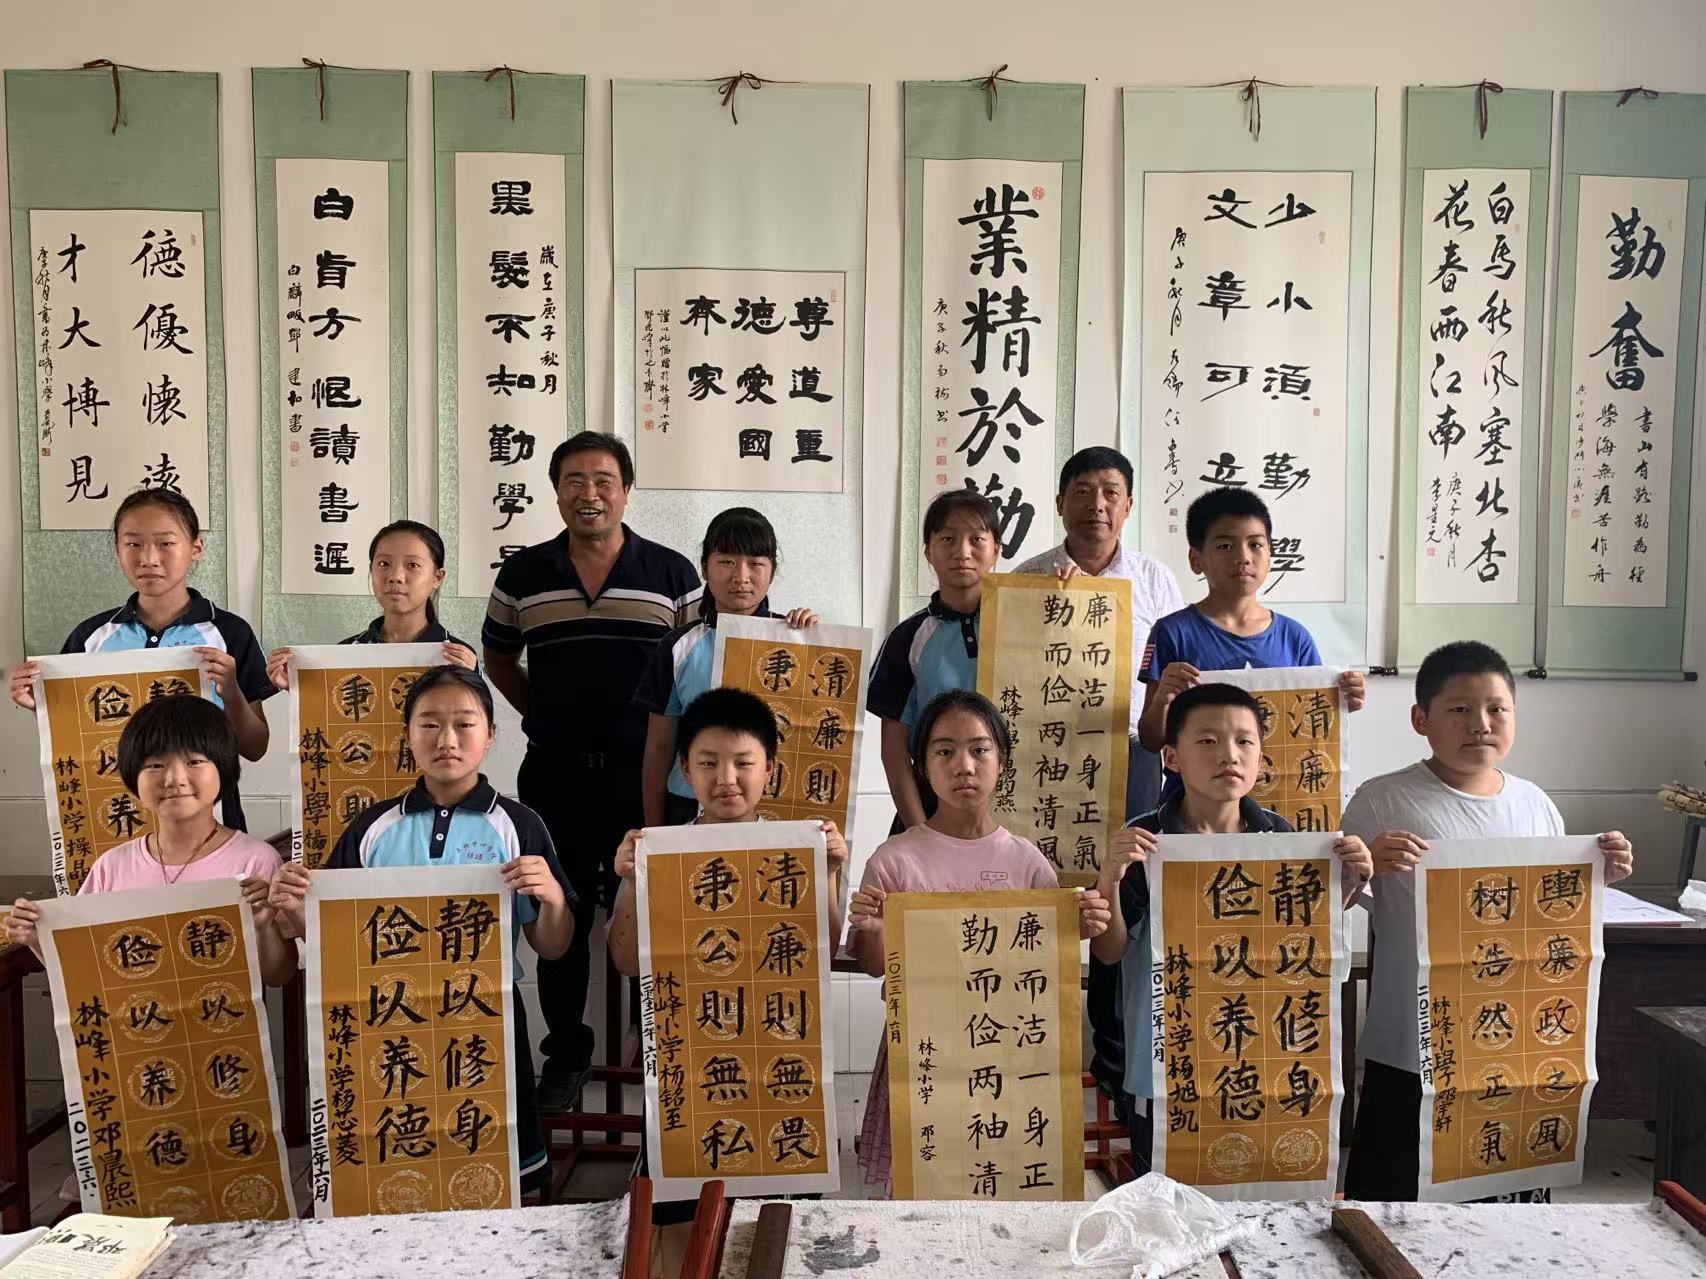 德優懷遠
才大博見
白首方悔讀書遲
黑髮不知勤學早
歲在庚子秋月
尊道重
德愛國
齊家
謹以此幅贈於林峰小学
業精於勤
庚子秋月
少小須勤學
文章可立
庚子秋月
白馬秋風塞北杏
花春雨江南
庚子秋月
勤奮
書山有路勤為径
學海無涯苦作舟
静
俭以养
林峰小学操晶
二〇二三年六
清廉
秉公則
林峰小學楊思
清廉則
秉公則
廉而洁一身正氣
勤而俭两袖清風
林峰小學楊昀燕
清廉則
静以修身
俭以养德
林峰小学邓晨熙
二〇二三.六.
静以修身
俭以养德
林峰小学杨芯菱
二〇二三年六月
清廉則無畏
秉公則無私
林峰小学杨铭至
二〇二三年六月
廉而洁一身正
勤而俭两袖清
二〇二三年六月
林峰小学 邓容
静以修身
俭以养德
林峰小学杨旭凯
二〇二三年六月
興廉政之風
树浩然正氣
林峰小學邓宇轩
二〇二三年六月